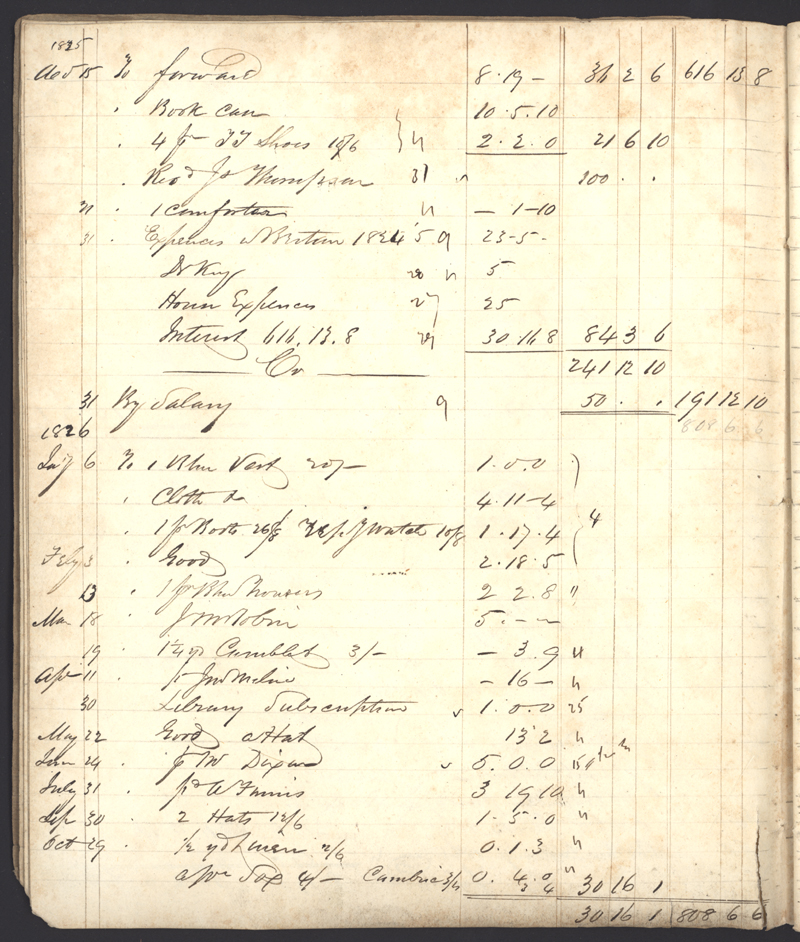 1825
15 To forward 8.19 – 31 2 6 616 13 8
" Book Case 10.5.10
" 4 pr Shoes 10/6 2.2.0 21 6 10
" Thompson 31 100 . .
31 " 1 Comforter – 1–10
31 " Expences 1824 5 9 23–5–
Dr King 5
House Expences 27 25
Interest 616.13.8 30.16 8 84 3 6
Cr 241 12 10
31 By Salary 9 50 . . 191 12 10
1826 808 6 6
Jany 6 To 1 Blue Vest 20/– 1.0.0
" Cloth 4.11–4
" 1 pr Boots 26/8 Watch 10/8 1.17.4 4
Feby 3 " Good 2.18.5
13 " 1 pr Blue Trousers 2 2.8 "
Mar 18 " 5.–
19 1¼ yd Camblet 3/– – 3.9 "
Apr 11 – 16 – "
30 Library Subscription 1.0.0 25
May 22 Good a Hat 13 2 "
June 24 W 5.0.0
July 31 pd W 3 19 10 "
Sep 30 2 Hats 12/6 1.5.0 "
Oct 29 ½ yd Linen 2/6 0.1.3 "
a pr Sox 4/– Cambric 0. 4.0 "
3 4 30 16 1
30 16 1 808 6 6